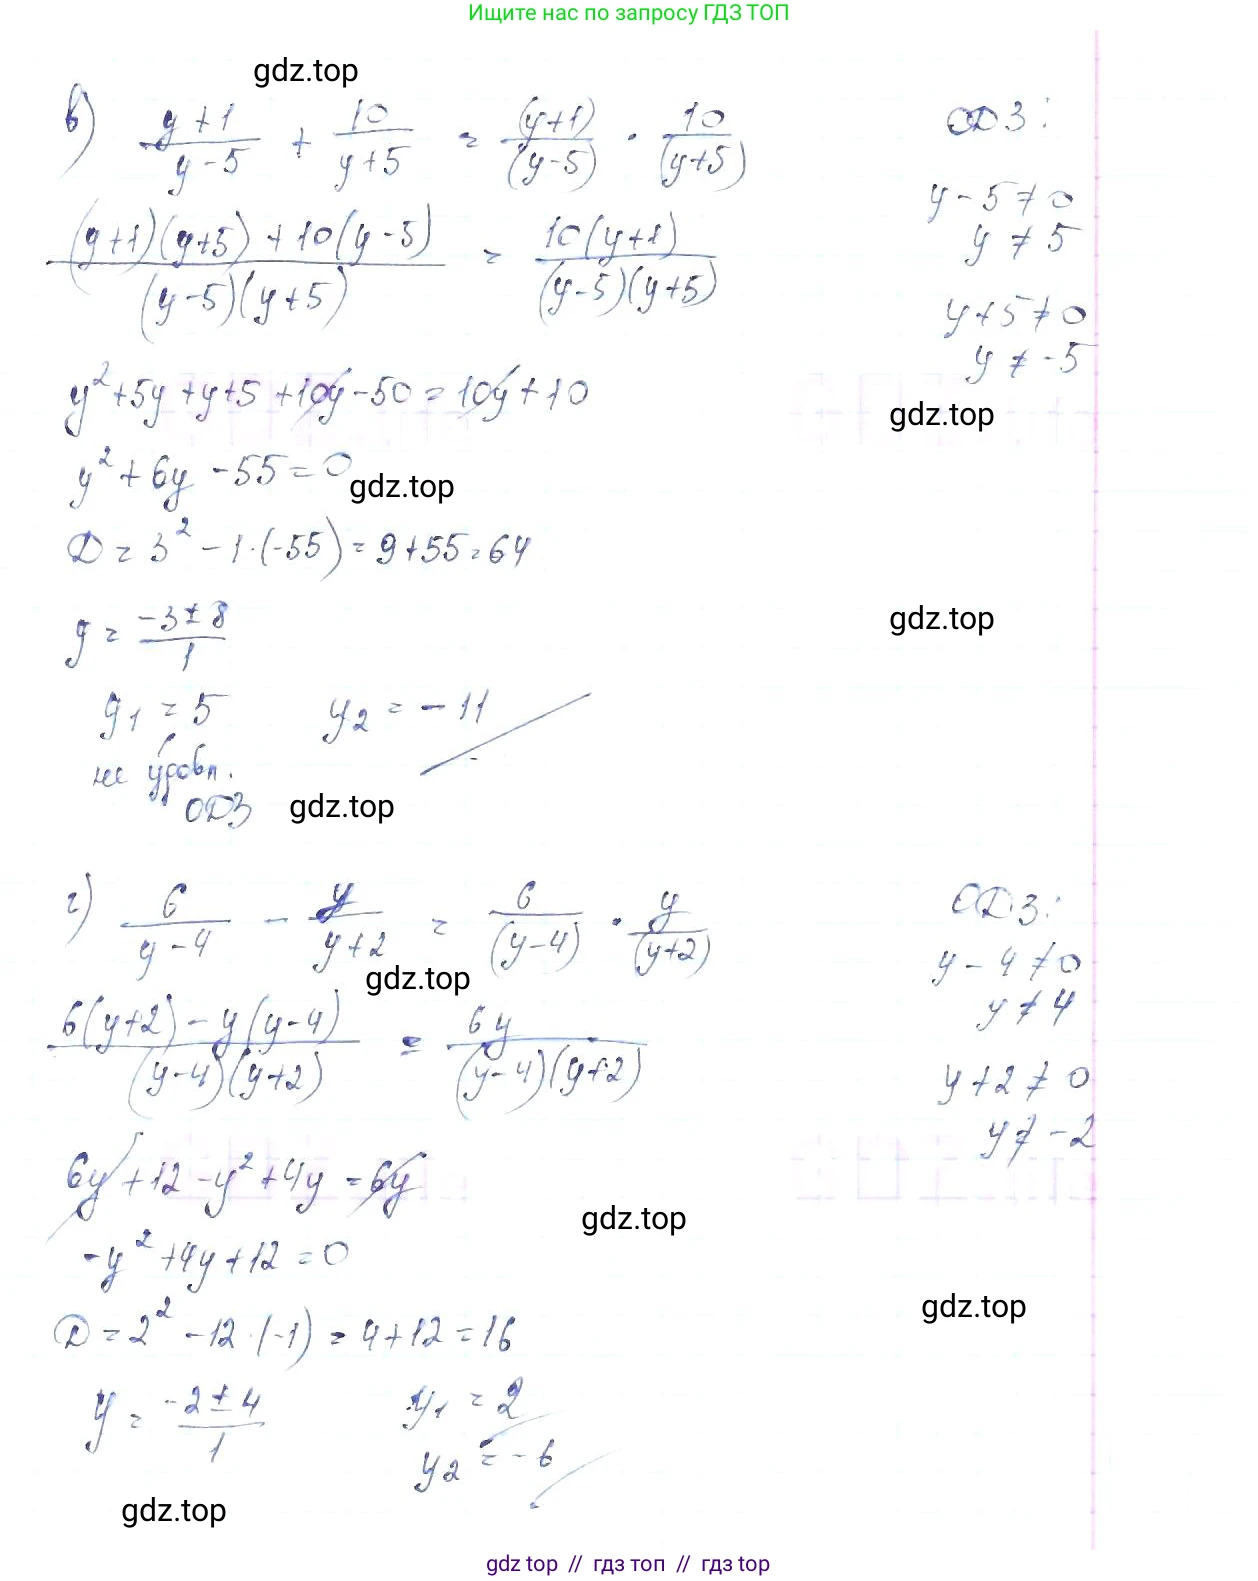 Ищите нас по запросу ГДЗ ТОП
gdz.top
в) (y+1)/(y-5) + 10/(y+5) = (y+1)/(y-5) · 10/(y+5)
ОДЗ:
y-5≠0
y≠5
((y+1)(y+5)+10(y-5))/((y-5)(y+5)) = 10(y+1)/((y-5)(y+5))
y+5≠0
y≠-5
y²+5y+y+5+10y-50=10y+10
gdz.top
y²+6y-55=0
gdz.top
D=3²-1·(-55)=9+55=64
y=(-3±8)/1
gdz.top
y₁=5 y₂=-11
не удовл.
ОДЗ
gdz.top
г) 6/(y-4) - y/(y+2) = 6/(y-4) · y/(y+2)
ОДЗ:
y-4≠0
y≠4
gdz.top
(6(y+2)-y(y-4))/((y-4)(y+2)) = 6y/((y-4)(y+2))
y+2≠0
y≠-2
6y+12-y²+4y=6y
gdz.top
-y²+4y+12=0
gdz.top
D=2²-12·(-1)=4+12=16
y=(-2±4)/1 y₁=2
y₂=-6
gdz.top
gdz top // гдз топ // гдз top